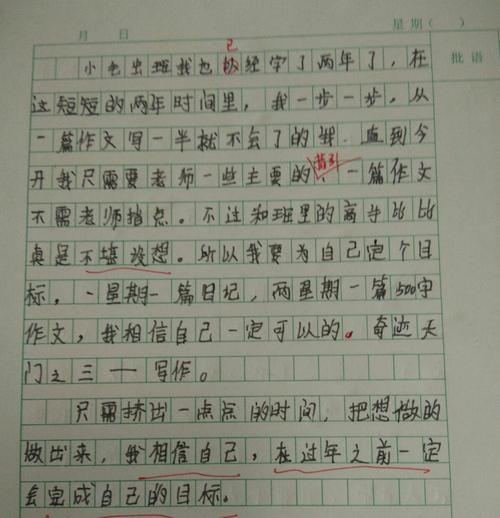 月 日 星期( )
批语
已
小屯出班我也从经学了两年了,在
这短短的两年时间里,我一步一步,从
一篇作文写一半就不会了的我,直到今
天我只需要老师一些主要的指引,一篇作文
不需老师指点。不过和班里的高手比比
真是不堪设想。所以我要为自己定个目
标,一星期一篇日记,两星期一篇500字
作文,我相信自己一定可以的。奇迹天
门之三——写作。
只需挤出一点点的时间,把想做的
做出来,我相信自己,在过年之前一定
会完成自己的目标。